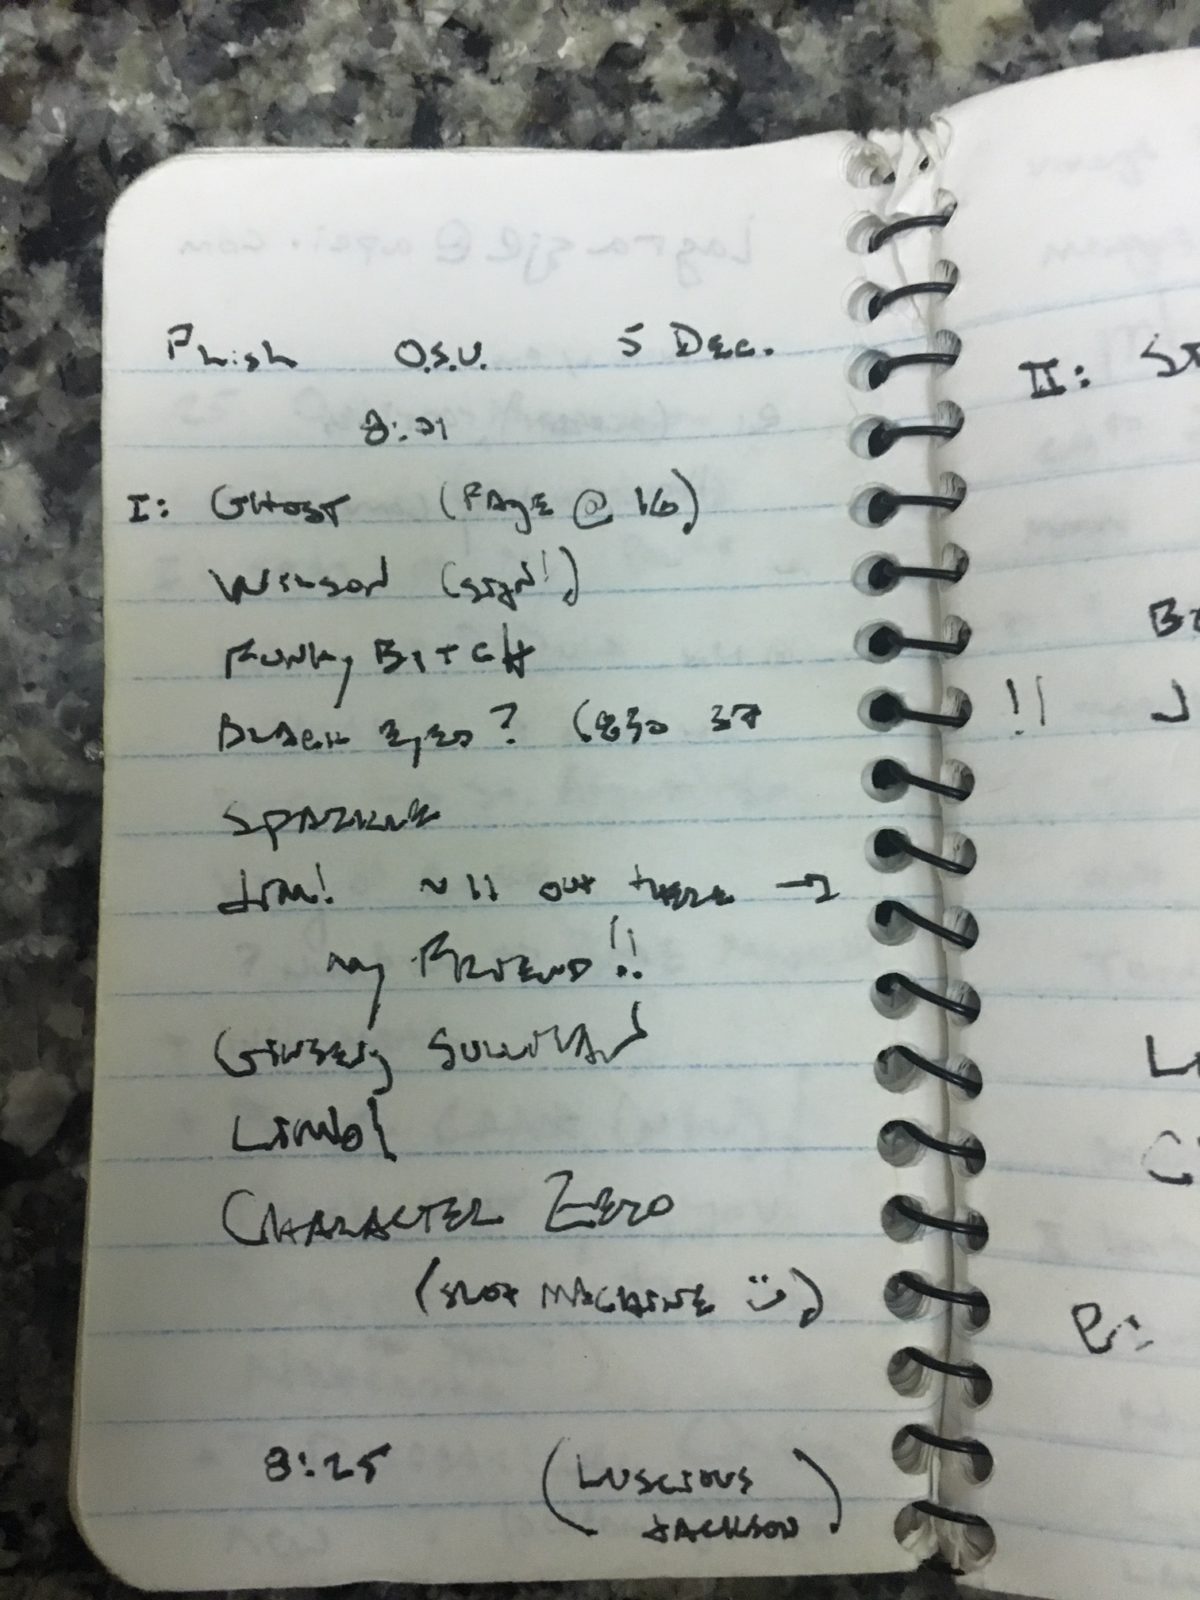 Phish O.S.U. 5 Dec.
I: GHOST (PAGE @ 16)
WILSON (SIGN!)
FUNKY BITCH
BLACK EYES?
SPARKLE
JIM! ~ 11 OUT THERE →
MY FRIEND!!
GINSENG SULLIVAN
LIMB
CHARACTER ZERO
(SLOT MACHINE :))
8:25 (LUSCIOUS
JACKSON)
II:
!!